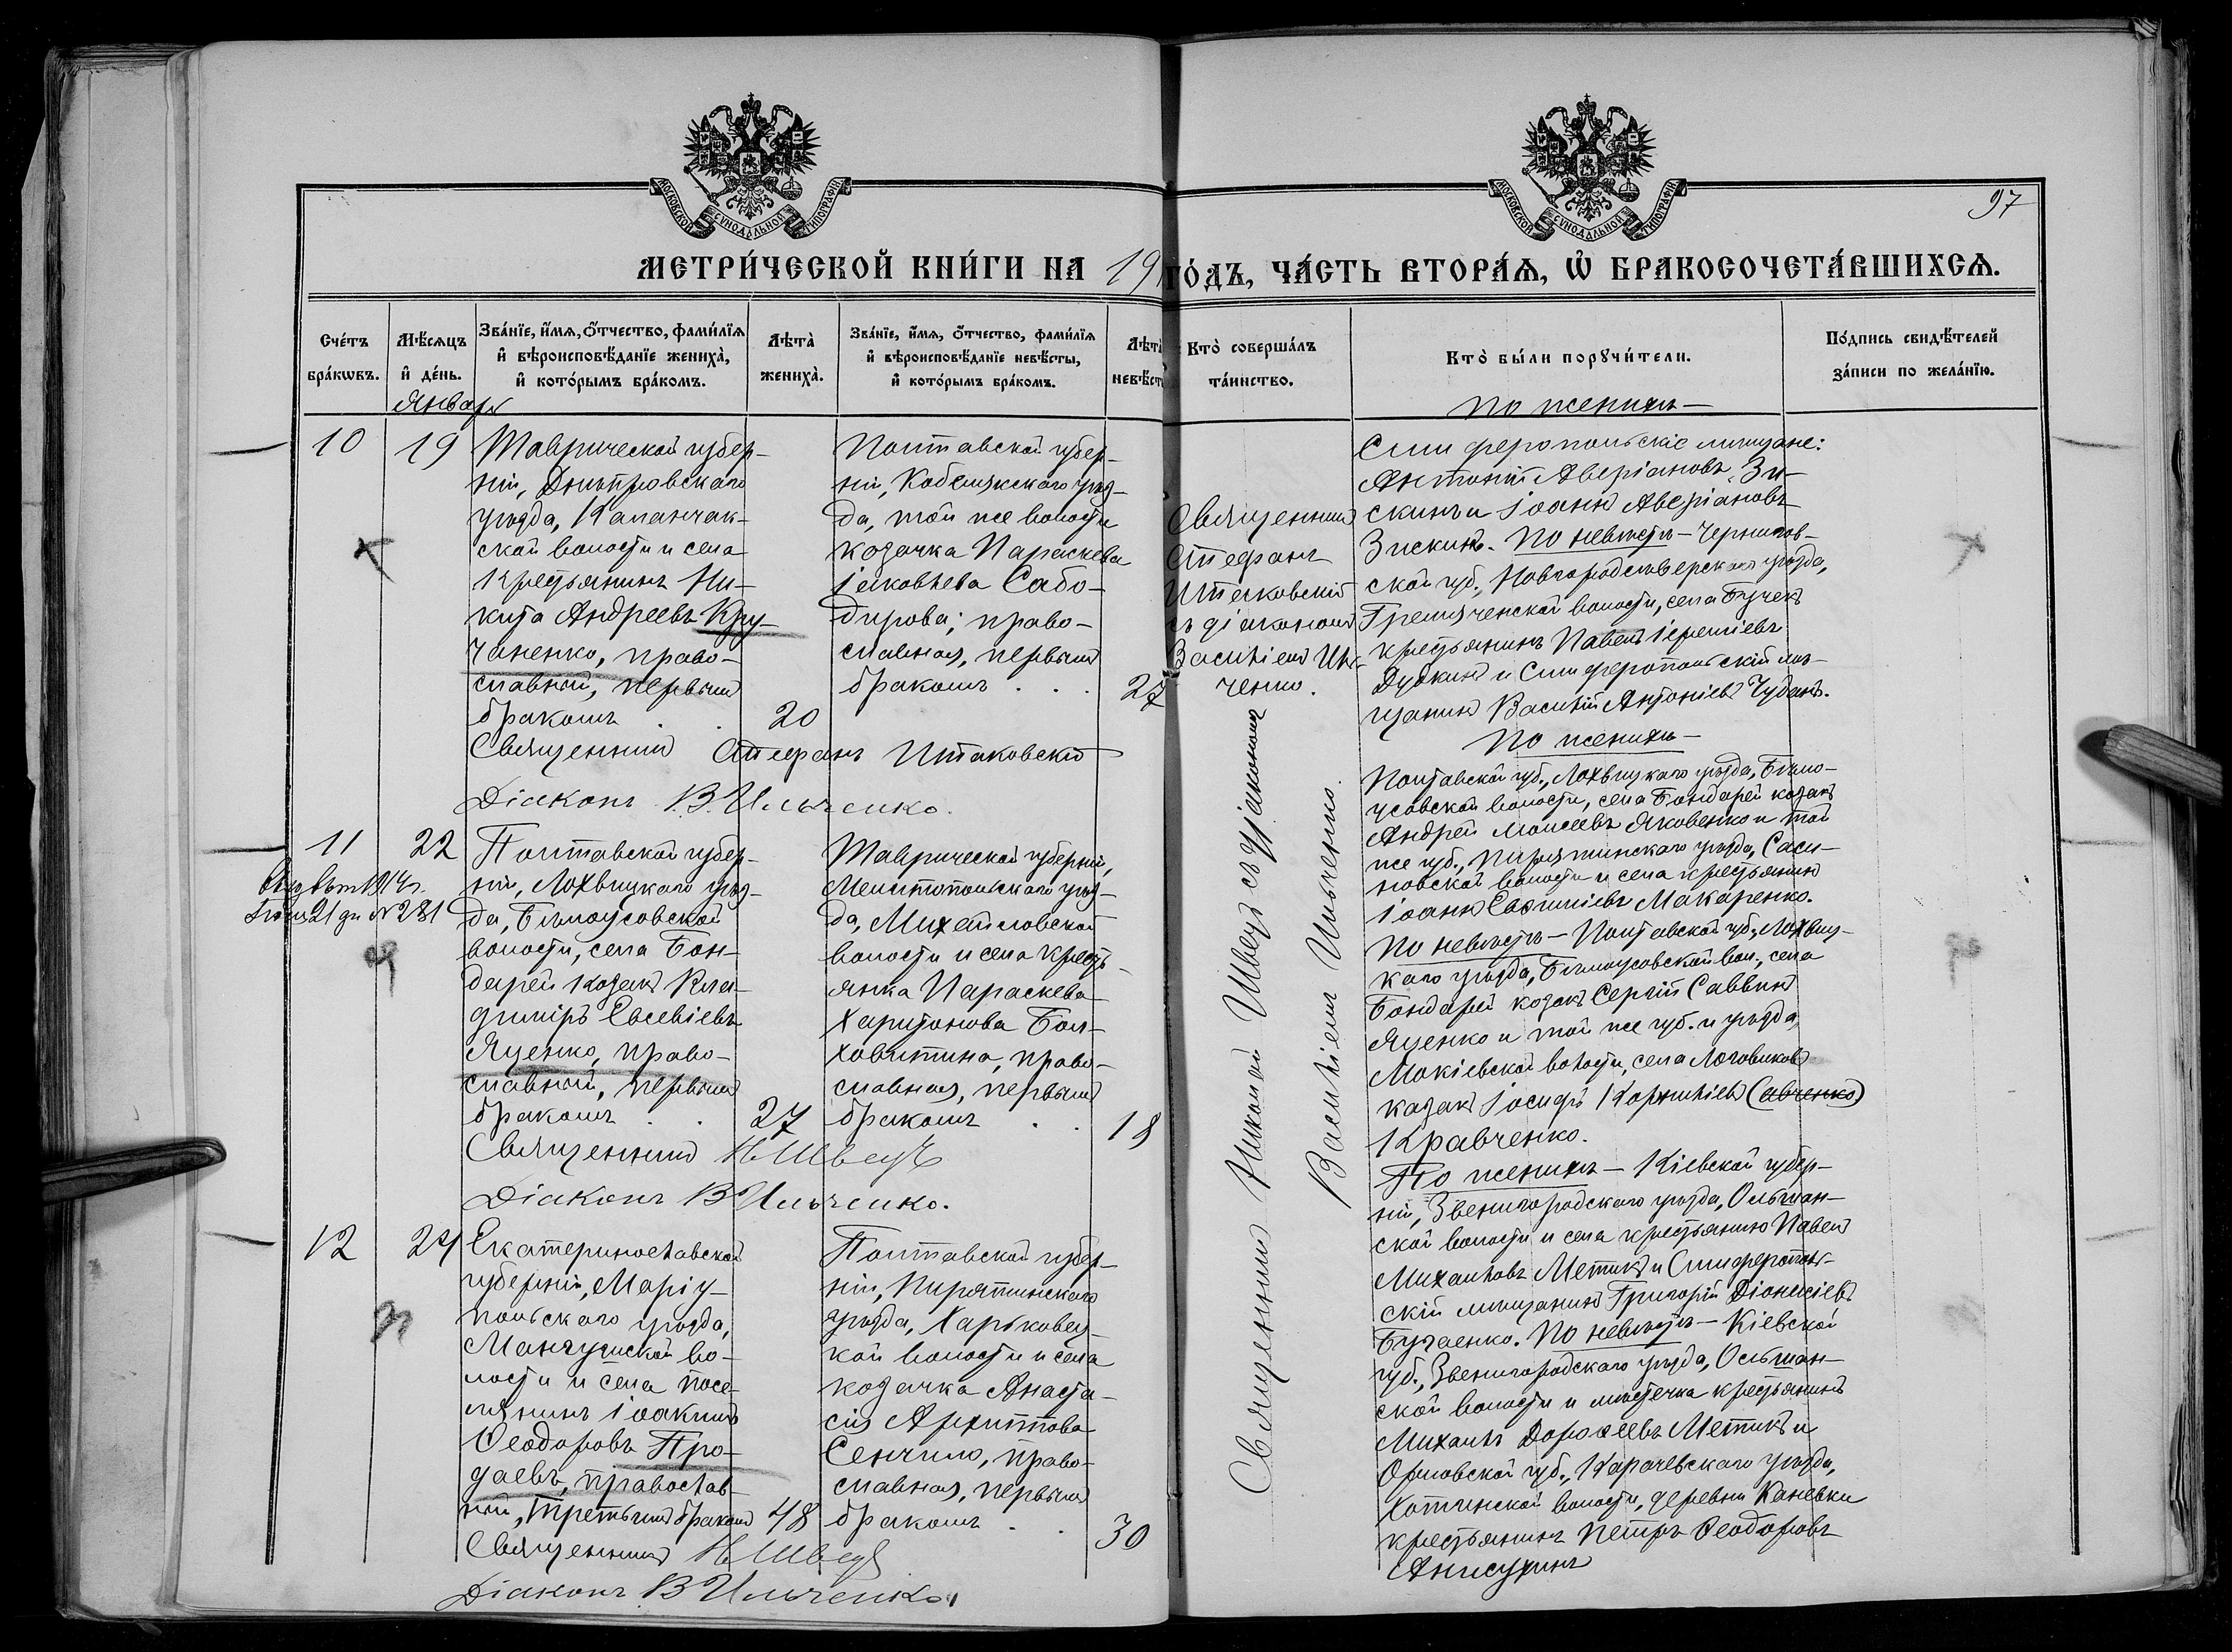 МОСКОВСКОЙ СѴНОДАЛЬНОЙ ТИПОГРАФІИ
МОСКОВСКОЙ СѴНОДАЛЬНОЙ ТИПОГРАФІИ
97
МЕТРИ́ЧЕСКОЙ КНИ́ГИ НА 19
ГО́ДЪ, ЧА́СТЬ ВТОРА́Ѧ, Ѽ БРАКОСОЧЕТА́ВШИХСѦ.
Сче́тъ бра́кѡвъ.
Мѣ́сяцъ и҆ де́нь.
Зва́нїе, и҆́мѧ, ѻ҆́тчество, фами́лїѧ
и҆ вѣроисповѣ́данїе жениха̀,
и҆ кото́рымъ бра́комъ.
Лѣта̀ жениха̀.
Зва́нїе, и҆́мѧ, ѻ҆́тчество, фами́лїѧ
и҆ вѣроисповѣ́данїе невѣ́сты,
и҆ кото́рымъ бра́комъ.
Лѣта̀
невѣ́ст
Кто̀ соверша́лъ
та́инство.
Кто̀ бы́ли порꙋчи́тели.
По́дпись свидѣ́телей
за́писи по жела́нїю.
Январь
10
19
Таврической губер-
ніи, Днѣпровскаго
уѣзда, Каланчак-
ской волости и села
крестьянинъ Ни-
кита Андреевъ Кру-
чаненко, право-
славный, первымъ
бракомъ . .
20
Полтавской губер-
ніи, Кобелякскаго уѣз-
да, той же волости
козачка Параскева
Іаковлева Сабо-
дирова, право-
славная, первымъ
бракомъ . . .
27
Священникъ Стефанъ Итаковскій
Діаконъ В. Ильченко.
Священникъ
Стефанъ
Итаковскій
съ діакономъ
Василіемъ Иль-
ченко.
По женихѣ —
Симферопольскіе мѣщане:
Антоній Аверіановъ Зи-
скинъ и Іоаннъ Аверіановъ
Зискинъ. По невѣстѣ — Чернигов-
ской губ., Новгородсѣверскаго уѣзда,
Гремяченской волости, села Бучекъ
крестьянинъ Павелъ Іереміевъ
Дудкинъ и Симферопольскій мѣ-
щанинъ Василій Антоніевъ Чубанъ.
11
22
№ 281
Полтавской губер-
ніи, Лохвицкаго уѣз-
да, Бѣлоусовской
волости, села Бон-
дарей козакъ Вла-
диміръ Евсевіевъ
Яценко, право-
славный, первымъ
бракомъ . .
27
Таврической губерніи,
Мелитопольскаго уѣз-
да, Михайловской
волости и села кресть-
янка Параскева
Харитонова Бол-
ховитина, право-
славная, первымъ
бракомъ . .
18
Священникъ Н. Швецъ
Діаконъ В. Ильченко.
Священникъ Николай Швецъ съ діакономъ
Василіемъ Ильченко.
По женихѣ —
Полтавской губ., Лохвицкаго уѣзда, Бѣло-
усовской волости, села Бондарей козакъ
Андрей Моисеевъ Яковенко и той
же губ., Пирятинскаго уѣзда, Саси-
новской волости и села крестьянинъ
Іоаннъ Евѳиміевъ Макаренко.
По невѣстѣ — Полтавской губ., Лохвиц-
каго уѣзда, Бѣлоусовской вол., села
Бондарей козакъ Сергій Саввинъ
Яценко и той же губ. и уѣзда,
Мокіевской волости, села Логовиковъ
казакъ Іосифъ Корниліевъ (авченко)
Кравченко.
12
24
Екатеринославской
губерніи, Маріу-
польскаго уѣзда,
Мангушской во-
лости и села посе-
лянинъ Іоакимъ
Ѳеодоровъ Про-
даевъ, православ-
ный, третьимъ бракомъ
48
Полтавской губер-
ніи, Пирятинскаго
уѣзда, Харьковец-
кой волости и села
козачка Анаста-
сія Архиппова
Сенчило, право-
славная, первымъ
бракомъ . .
30
Священникъ Н. Швецъ
Діаконъ В. Ильченко.
По женихѣ — Кіевской губер-
ніи, Звенигородскаго уѣзда, Ольшан-
ской волости и села крестьянинъ Павелъ
Михаиловъ Метикъ и Симферополь-
скій мѣщанинъ Григорій Діонисіевъ
Бугаенко. По невѣстѣ — Кіевской
губ., Звенигородскаго уѣзда, Ольшан-
ской волости и мѣстечка крестьянинъ
Михаилъ Дороѳеевъ Метикъ и
Орловской губ., Карачевскаго уѣзда,
Хотинской волости, деревни Каневки
крестьянинъ Петръ Ѳеодоровъ
Анисухинъ